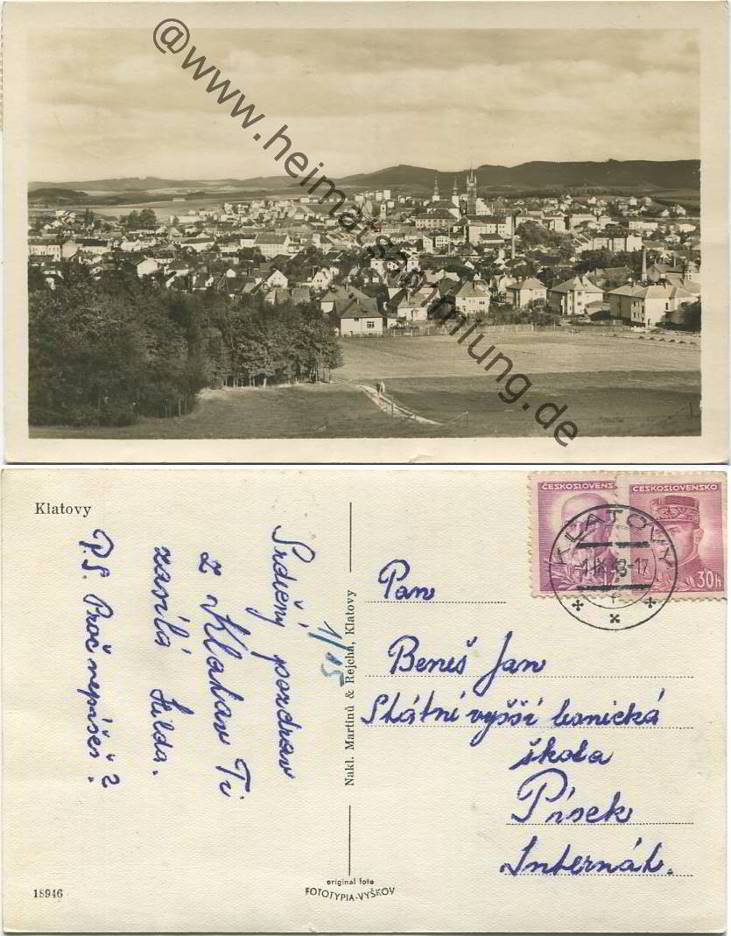 @www.heimatsammlung.de
Klatovy
ČESKOSLOVENS
ČESKOSLOVENSKO
30h
KLATOVY
Srdečný pozdrav
z Klatov Ti
zasílá Hilda.
P.S. Proč nepíšeš?
1/15
Nakl. Martinů & Rejcha, Klatovy
Pan
Beneš Jan
Státní vyšší
škola
Písek
Internát.
18946
original foto
FOTOTYPIA-VYŠKOV